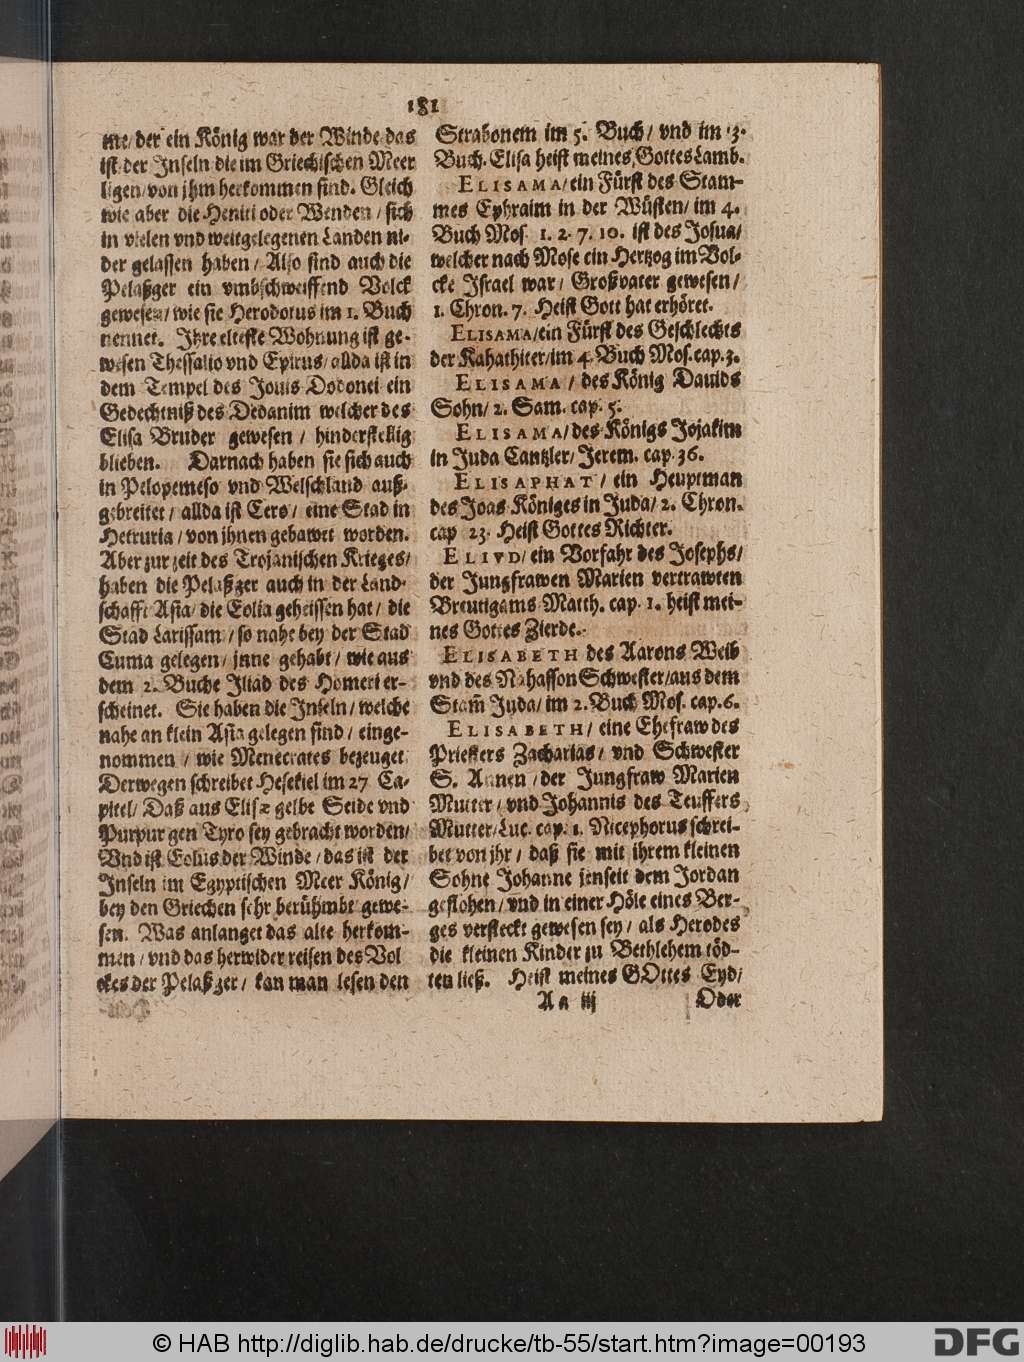 181
me/ der ein König war der Winde das
ist der Inseln die im Griechischen Meer
ligen/ von jhm herkommen sind. Gleich
wie aber die Heniti oder Wenden / sich
in vielen vnd weitgelegenen Landen ni-
der gelassen haben / Also sind auch die
Pelaßger ein vmbschweiffend Volck
gewesen/ wie sie Herodotus im 1. Buch
nennet. Ihre elteste Wohnung ist ge-
wesen Thessalio vnd Epirus/ allda ist in
dem Tempel des Jouis Dodonei ein
Gedechtniß des Dedanim welcher des
Elisa Bruder gewesen / hinderstellig
blieben. Darnach haben sie sich auch
in Pelopeneso vnd Welschland auß-
gebreitet / allda ist Cere / eine Stad in
Hetruria / von jhnen gebawet worden.
Aber zur zeit des Trojanischen Krieges/
haben die Pelaßger auch in der Land-
schafft Asia/ die Eolia geheissen hat / die
Stad Larissam / so nahe bey der Stad
Cuma gelegen / jnne gehabt / wie aus
dem 2. Buche Iliad des Homeri er-
scheinet. Sie haben die Inseln / welche
nahe an klein Asia gelegen sind / einge-
nommen / wie Menecrates bezeuget
Derwegen schreibet Hesekiel im 27 Ca-
pitel/ Daß aus Elisæ gelbe Seide vnd
Purpur gen Tyro sey gebracht worden/
Vnd ist Eolus der Winde / das ist der
Inseln im Egyptischen Meer König /
bey den Griechen sehr berühmbt gewe-
sen. Was anlanget das alte herkom-
men / vnd das herwider reisen des Vol
ckes der Pelaßger / kan man lesen den
Strabonem im 5. Buch / vnd im 13.
Buch. Elisa heist meines Gottes Lamb.
ELISAMA/ ein Fürst des Stam-
mes Ephraim in der Wüsten/ im 4.
Buch Mos. 1. 2. 7. 10. ist des Josua/
welcher nach Mose ein Hertzog im Vol-
cke Israel war / Großvater gewesen /
1. Chron. 7. Heist Gott hat erhöret.
ELISAMA/ein Fürst des Geschlechts
der Kahathiter/im 4. Buch Mos. cap. 3.
ELISAMA / des König Dauids
Sohn/ 2. Sam. cap. 5.
ELISAMA/ des Königs Jojakim
in Juda Cantzler/ Jerem. cap. 36.
ELISAPHAT / ein Heuptman
des Joas Königes in Juda/ 2. Chron.
cap 23. Heist Gottes Richter.
ELIVD/ ein Vorfahr des Josephs/
der Jungfrawen Marien vertrawten
Breutigams Matth. cap. 1. heist mei-
nes Gottes Zierde.
ELISABETH des Aarons Weib
vnd des Nahasson Schwester/aus dem
Stam̃ Juda/ im 2. Buch Mos. cap. 6.
ELISABETH / eine Ehefraw des
Priesters Zacharias / vnd Schwester
S. Annen / der Jungfraw Marien
Mutter / vnd Johannis des Teuffers
Mutter/Luc. cap. 1. Nicephorus schrei-
bet von jhr / daß sie mit ihrem kleinen
Sohne Johanne jenseit dem Jordan
geflohen / vnd in einer Höle eines Ber-
ges versteckt gewesen sey / als Herodes
die kleinen Kinder zu Bethlehem töd-
ten ließ. Heist meines GOttes Eyd/
Aa iij Oder
© HAB http://diglib.hab.de/drucke/tb-55/start.htm?image=00193
DFG